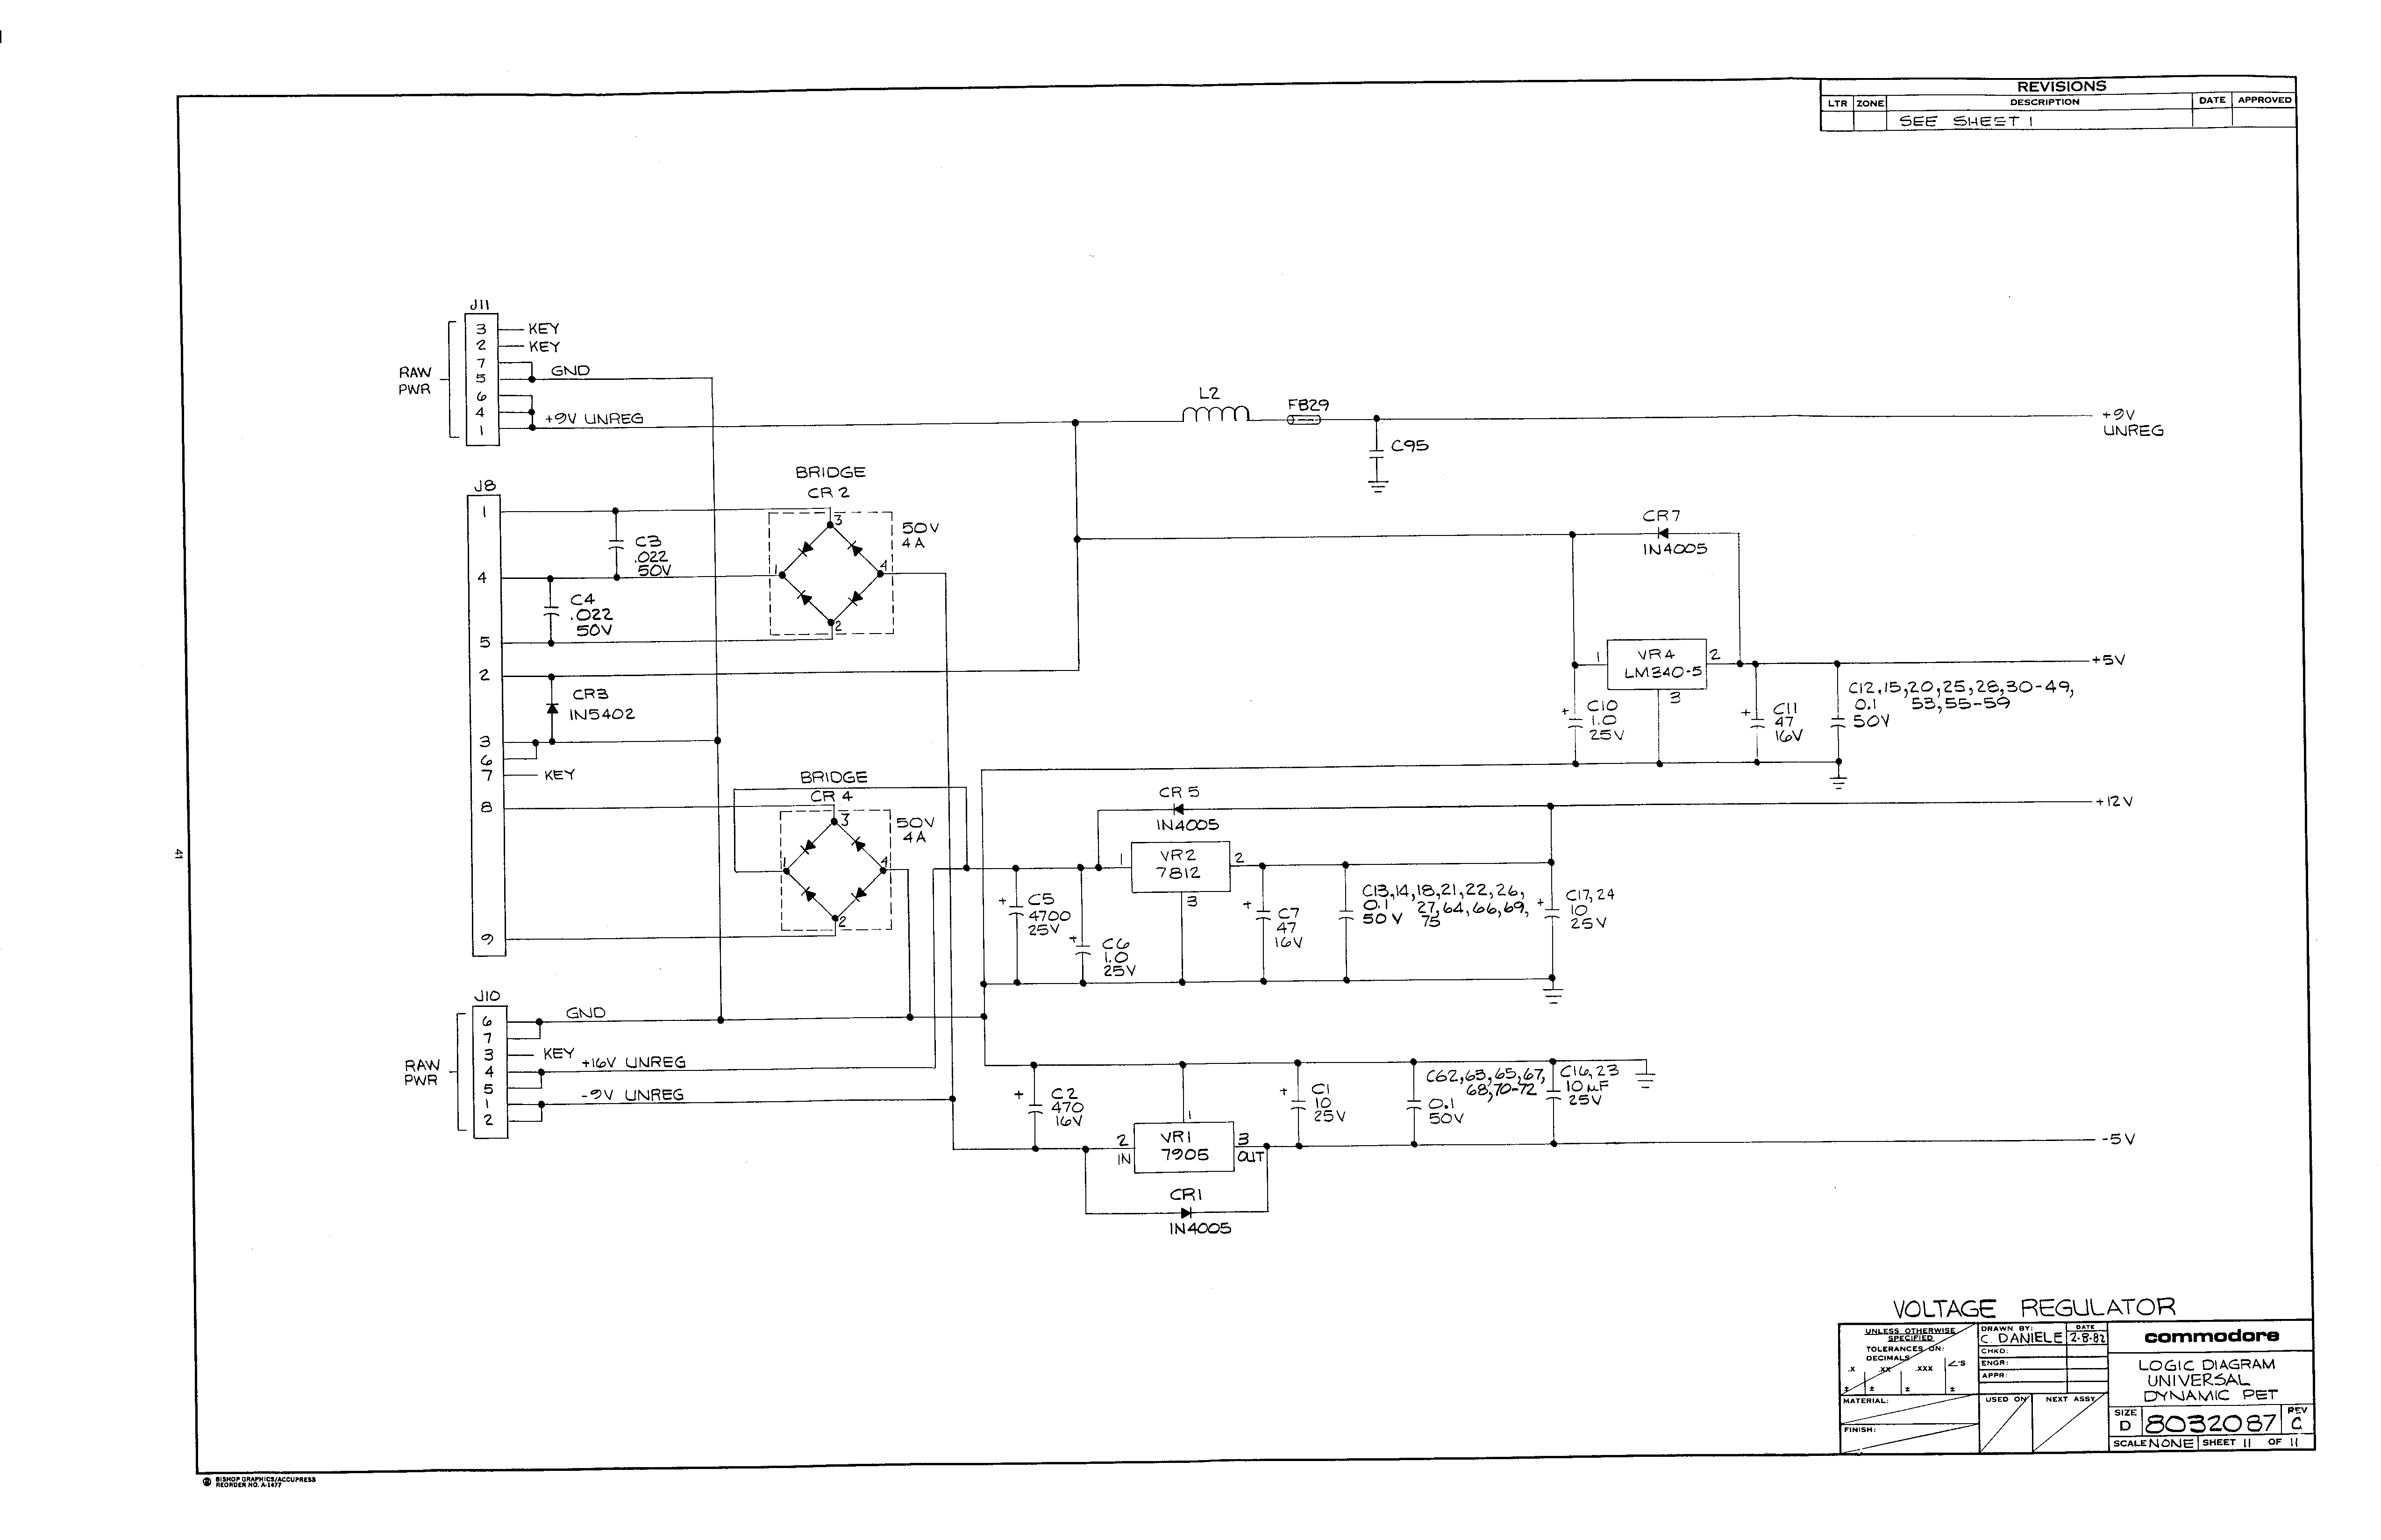 REVISIONS
LTR ZONE DESCRIPTION DATE APPROVED
SEE SHEET 1
J11
3 KEY
2 KEY
7
5 GND
6
4
1 +9V UNREG
RAW
PWR
L2
FB29
C95
+9V
UNREG
J8
1
4
5
2
3
6
7 KEY
8
9
C3
.022
50V
C4
.022
50V
CR3
IN5402
BRIDGE
CR 2
3
1
4
2
50V
4A
BRIDGE
CR 4
3
1
4
2
50V
4A
CR7
IN4005
1
VR4
LM340-5
2
3
+5V
C10
1.0
25V
C11
47
16V
C12,15,20,25,28,30-49,
53,55-59
0.1
50V
CR 5
IN4005
+12V
1
VR2
7812
2
3
C5
4700
25V
C6
1.0
25V
C7
47
16V
C13,14,18,21,22,26,
27,64,66,69,
75
0.1
50V
C17,24
10
25V
J10
6 GND
7
3 KEY
4 +16V UNREG
5
1 -9V UNREG
2
RAW
PWR
C2
470
16V
1
2
IN
VR1
7905
3
OUT
CR1
IN4005
C1
10
25V
C62,63,65,67,
68,70-72
0.1
50V
C16,23
10µF
25V
-5V
41
VOLTAGE REGULATOR
UNLESS OTHERWISE
SPECIFIED
TOLERANCES ON:
DECIMALS
.X .XX .XXX ∠'S
± ± ± ±
MATERIAL:
FINISH:
DRAWN BY: DATE
C. DANIELE 2-8-82
CHKD:
ENGR:
APPR:
USED ON NEXT ASSY
commodore
LOGIC DIAGRAM
UNIVERSAL
DYNAMIC PET
SIZE
D
8032087
REV
C
SCALE NONE SHEET 11 OF 11
BISHOP GRAPHICS/ACCUPRESS
REORDER NO. A-1477